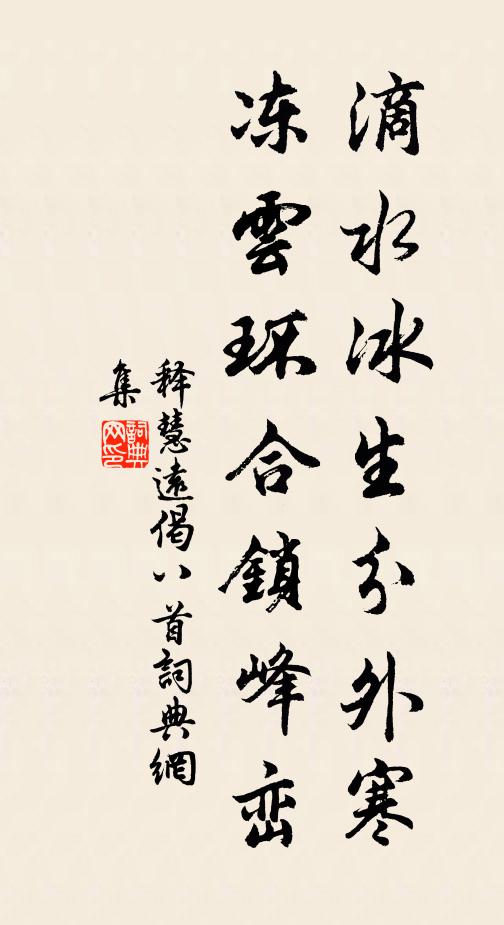 滴水冰生分外寒
冻雲环合鎖峰峦
释慧遠偈八首詞典網
集
詞典网印